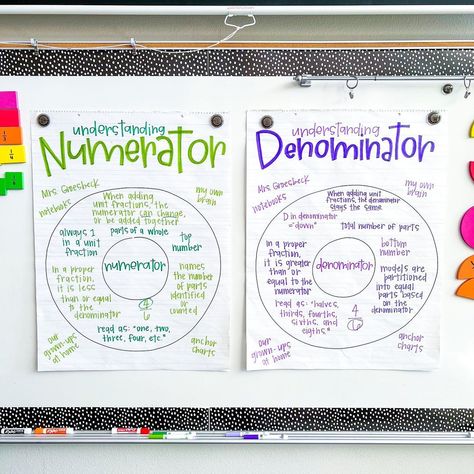 understanding
Numerator
Mrs Groesbeck
my own
brain
notebooks
When adding
unit fractions, the
numerator can change,
or be added together
always 1
in a unit
fraction
parts of a whole
top
number
numerator
In a proper
fraction,
it is less
than or equal
to the
denominator
names
the number
of parts
identified
or
counted
4
6
read as: "one, two,
three, four, etc."
our
grown-ups
at home
anchor
charts
understanding
Denominator
Mrs Groesbeck
my own
brain
notebooks
When adding unit
fractions, the denominator
stays the same
D in denominator
= "down"
total number of parts
In a proper
fraction,
it is greater
than or
equal to the
numerator
denominator
bottom
number
models are
partitioned
into equal
parts based
on the
denominator
read as: "halves,
thirds, fourths,
sixths, and
eigths."
4
6
our
grown-ups
at home
anchor
charts